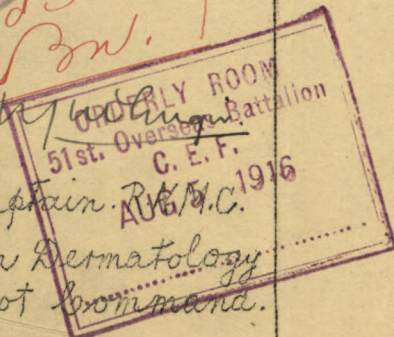 Bn.
ORDERLY ROOM
51st. Overseas Battalion
C. E. F.
AUG 5 1916
ptain. R.A.M.C.
Dermatology
ot Command.